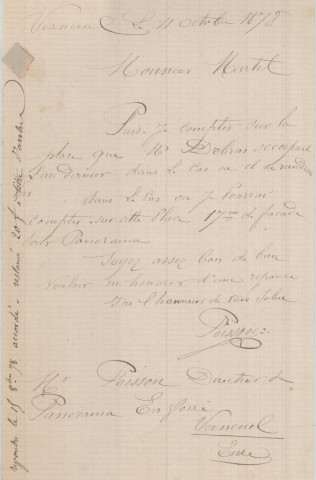 Verneuil Le 11 octobre 1878
Monsieur Martel
Puis-Je compter sur la
place que Mr Dobras occupait
L'an dernier dans le cas ou el
dans le Cas ou Je Pourrai
Compter sur cette Place 17m de façade
Pour Panorama
Soyez assez bon de
vouloir m'honorer d'une reponse
J'ai l'honneur de vous Saluer
Poisson
Mr Poisson Directeur de
Panorama En foire
Verneuil
Eure
repondu le 15 8bre 78 accordé - reclamé 20 f à titre d'arrhes